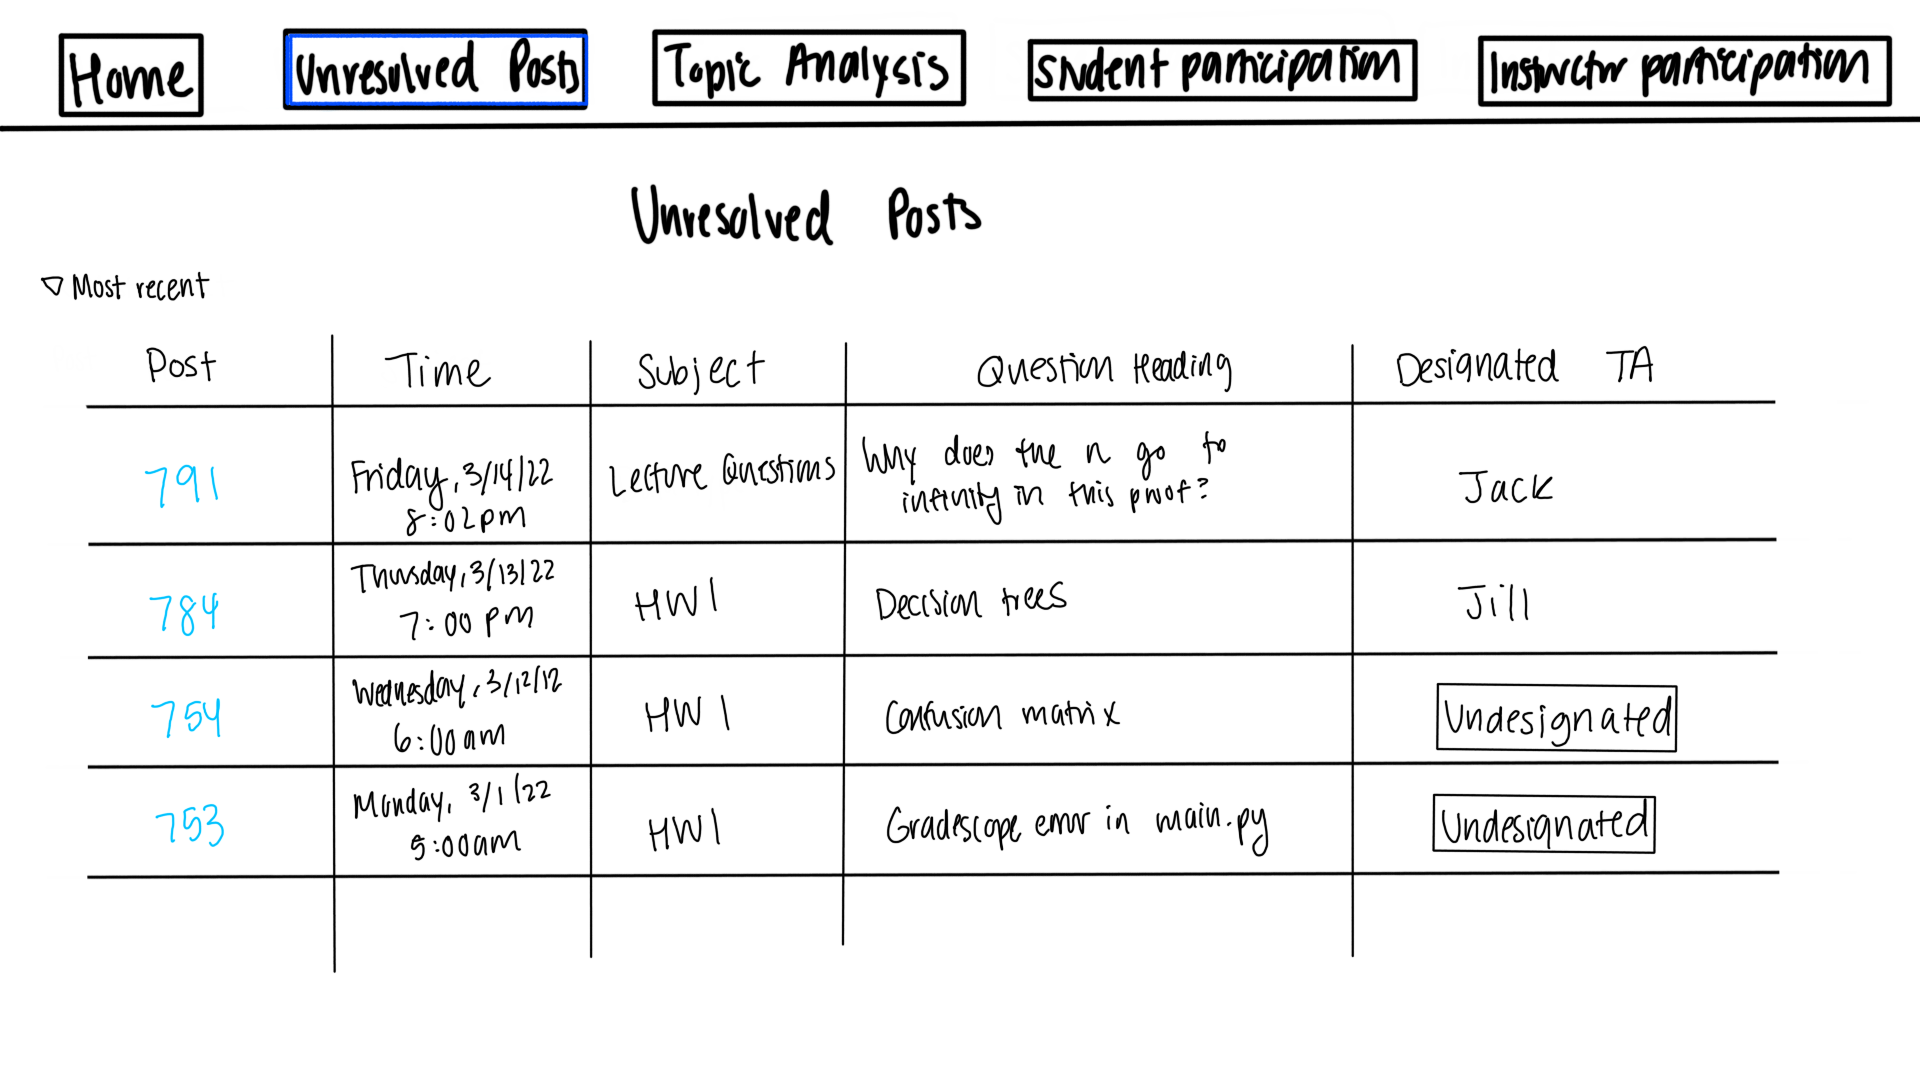 Home
Unresolved Posts
Topic Analysis
Student participation
Instructor participation
Unresolved Posts
▽ Most recent
Post
Time
Subject
Question Heading
Designated TA
791
Friday, 3/14/22
8:02pm
Lecture Questions
Why does the n go to
infinity in this proof?
Jack
784
Thursday, 3/13/22
7:00 pm
HW1
Decision trees
Jill
754
Wednesday, 3/12/12
6:00am
HW 1
Confusion matrix
Undesignated
753
Monday, 3/1/22
5:00am
HW1
Gradescope error in main.py
Undesignated